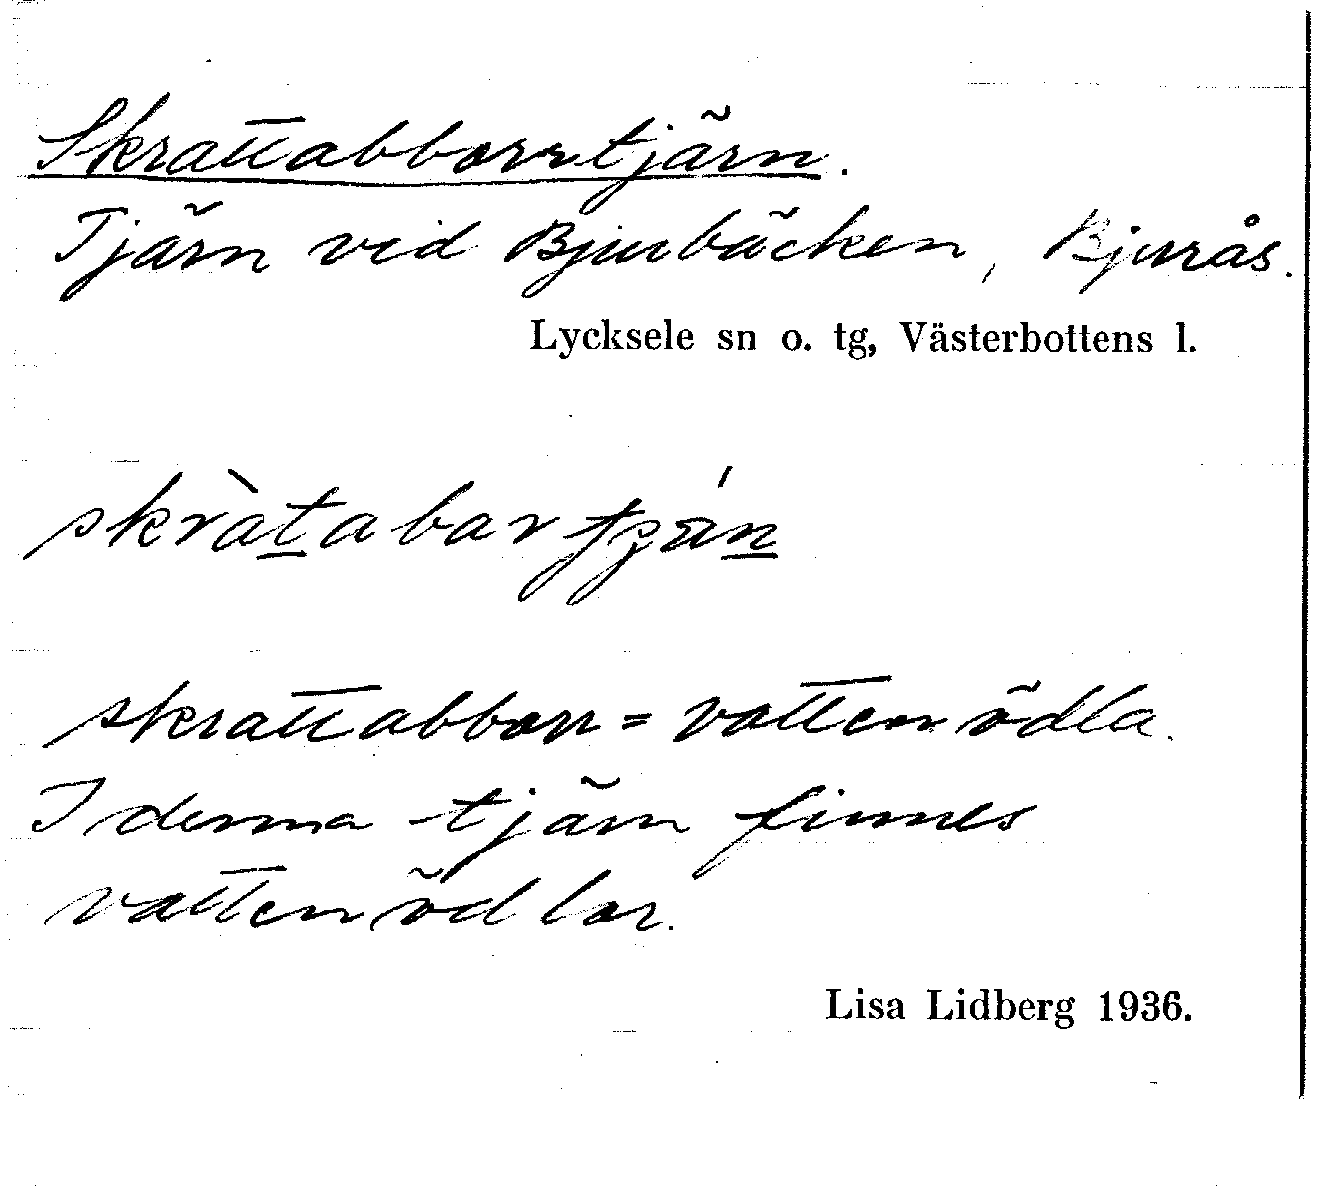 Skrattabborrtjärn.
Tjärn vid Bjurbäcken, Bjurås.
Lycksele sn o. tg, Västerbottens l.
skrattabborr = vattenödla.
I denna tjärn finnes
vattenödlar.
Lisa Lidberg 1936.